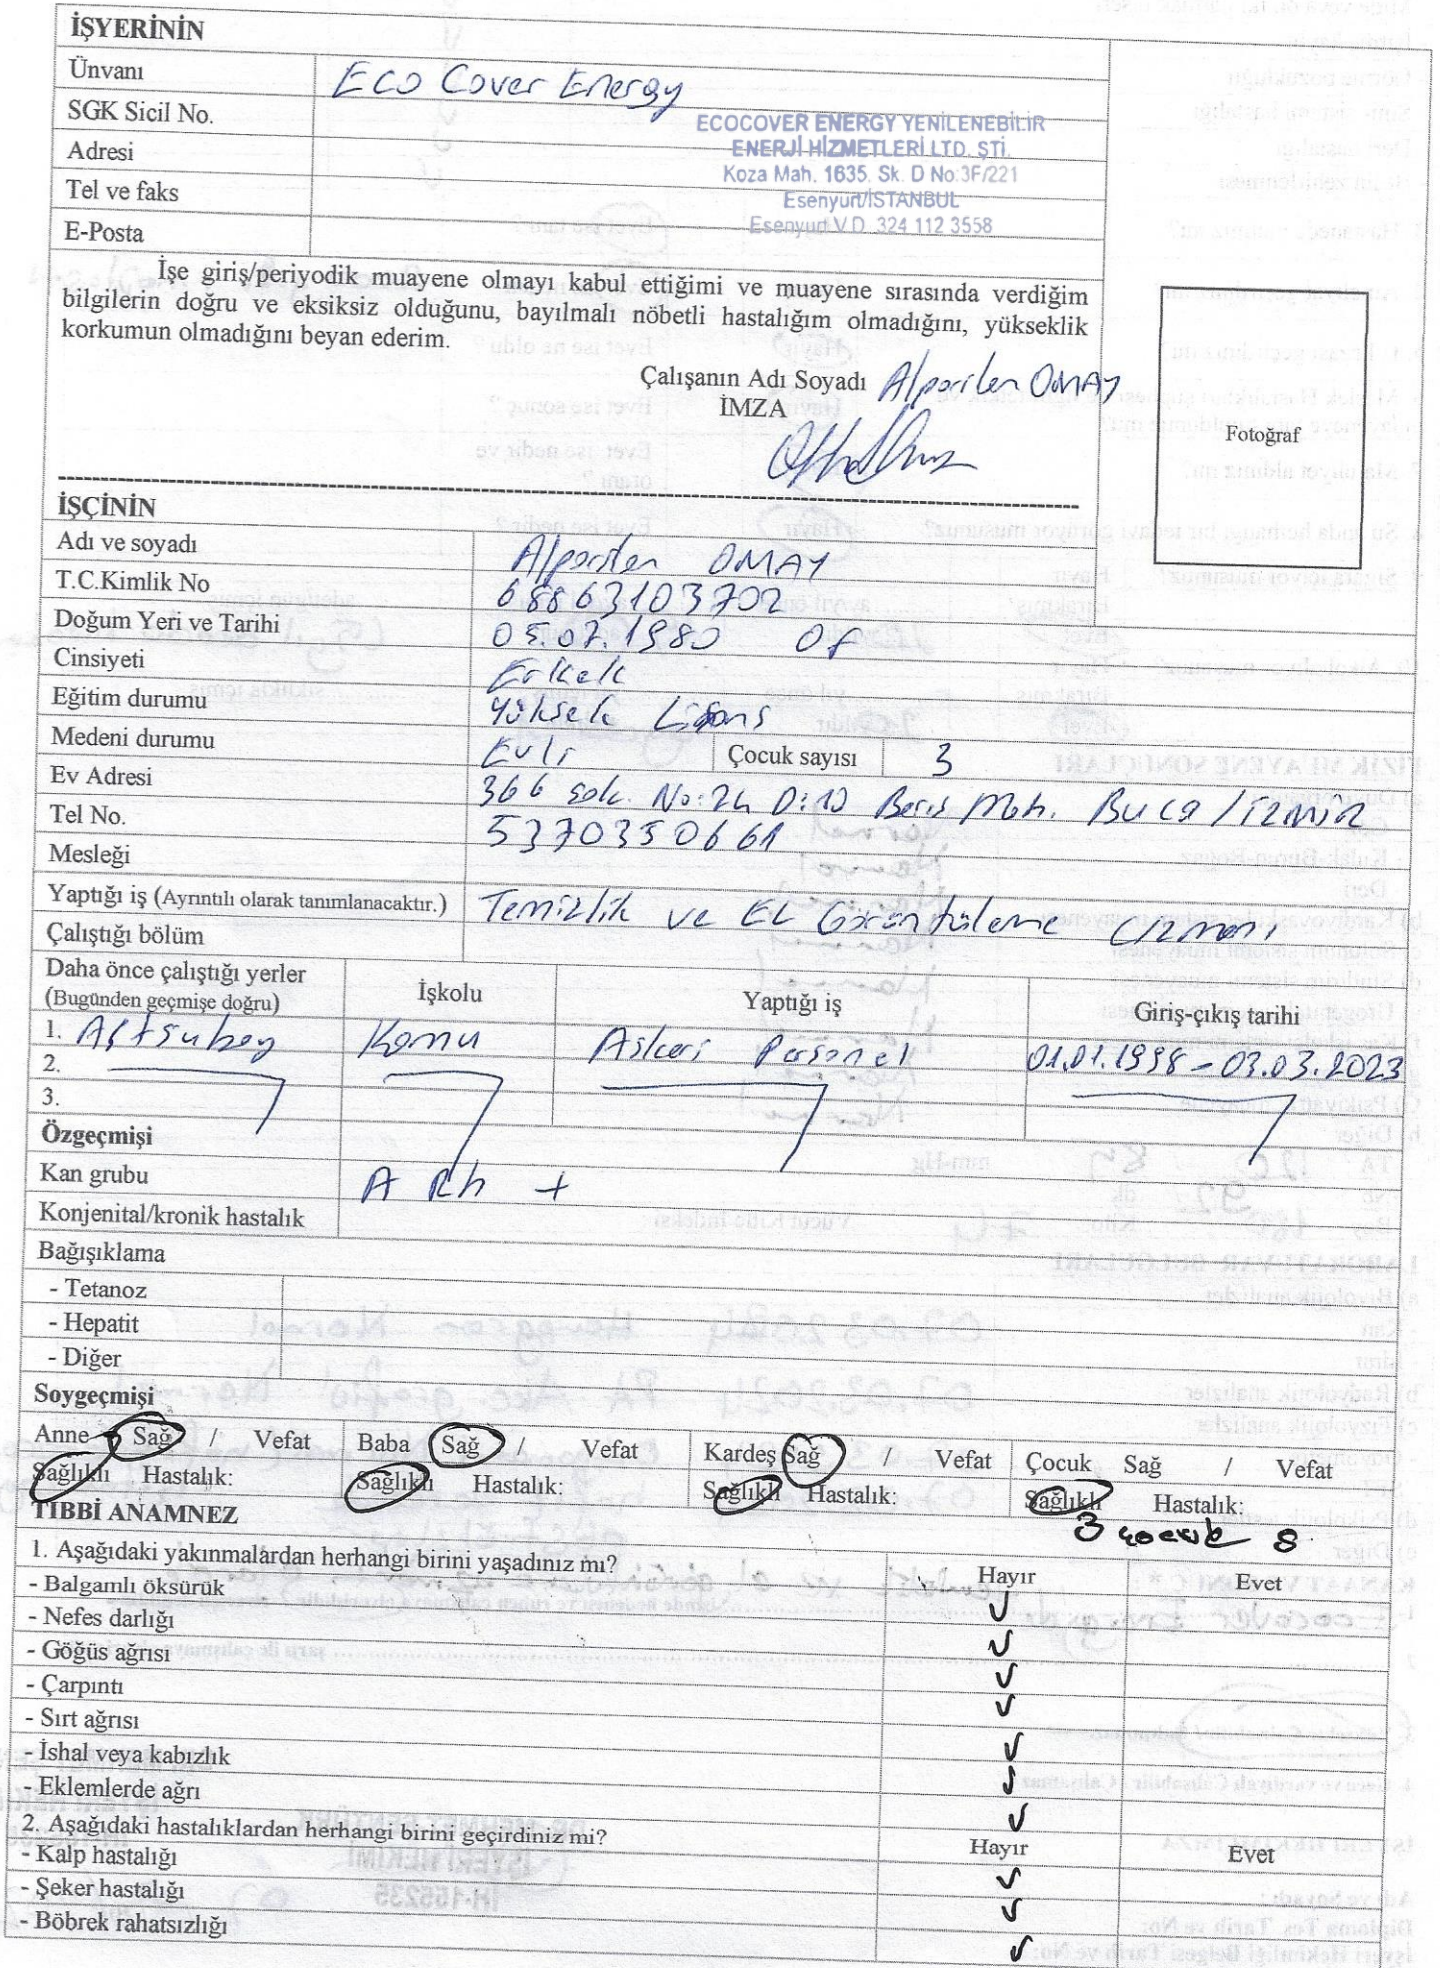 İŞYERİNİN
Ünvanı Eco Cover Energy
SGK Sicil No.
Adresi
Tel ve faks
E-Posta
ECOCOVER ENERGY YENİLENEBİLİR
ENERJİ HİZMETLERİ LTD. ŞTİ.
Koza Mah. 1635. Sk. D No:3F/221
Esenyurt/İSTANBUL
Esenyurt V.D. 324 112 3558
İşe giriş/periyodik muayene olmayı kabul ettiğimi ve muayene sırasında verdiğim
bilgilerin doğru ve eksiksiz olduğunu, bayılmalı nöbetli hastalığım olmadığını, yükseklik
korkumun olmadığını beyan ederim.
Çalışanın Adı Soyadı Alparslan OMAY
İMZA
Fotoğraf
İŞÇİNİN
Adı ve soyadı Alparslan OMAY
T.C.Kimlik No 68863103702
Doğum Yeri ve Tarihi 05.07.1980 Of
Cinsiyeti Erkek
Eğitim durumu Yüksek Lisans
Medeni durumu Evli Çocuk sayısı 3
Ev Adresi 366 sok. No:24 D:10 Barış Mah. Buca / İZMİR
Tel No. 5370350661
Mesleği
Yaptığı iş (Ayrıntılı olarak tanımlanacaktır.) Temizlik ve EL Görüntüleme Uzmanı
Çalıştığı bölüm
Daha önce çalıştığı yerler İşkolu Yaptığı iş Giriş-çıkış tarihi
(Bugünden geçmişe doğru)
1. Astsubay Kamu Askeri Personel 01.01.1998 - 03.03.2023
2.
3.
Özgeçmişi
Kan grubu A Rh +
Konjenital/kronik hastalık
Bağışıklama
- Tetanoz
- Hepatit
- Diğer
Soygeçmişi
Anne Sağ / Vefat Baba Sağ / Vefat Kardeş Sağ Vefat Çocuk Sağ / Vefat
Sağlıklı Hastalık: Sağlıklı Hastalık: Sağlıklı Hastalık: Sağlıklı Hastalık:
3 çocuk S
TIBBİ ANAMNEZ
1. Aşağıdaki yakınmalardan herhangi birini yaşadınız mı? Hayır Evet
- Balgamlı öksürük ✓
- Nefes darlığı ✓
- Göğüs ağrısı ✓
- Çarpıntı ✓
- Sırt ağrısı ✓
- İshal veya kabızlık ✓
- Eklemlerde ağrı ✓
2. Aşağıdaki hastalıklardan herhangi birini geçirdiniz mi? Hayır Evet
- Kalp hastalığı ✓
- Şeker hastalığı ✓
- Böbrek rahatsızlığı ✓